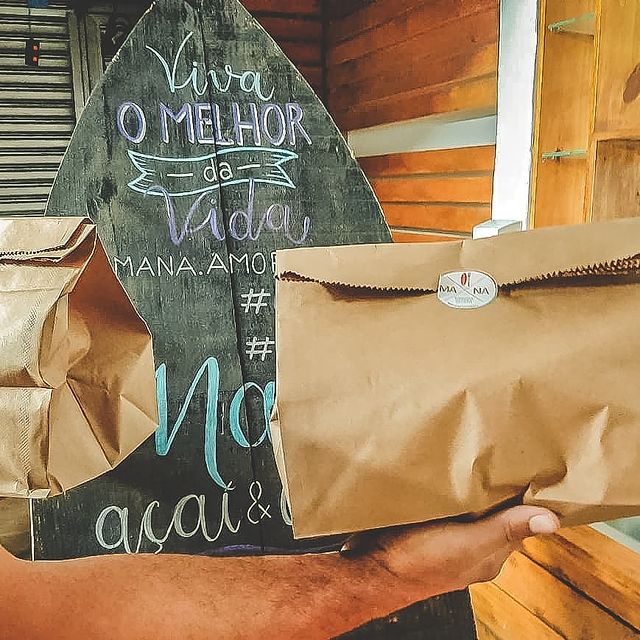 Viva
O MELHOR
da
Vida
MANA.AMOR
#
#
açaí &
Oi
MA NA